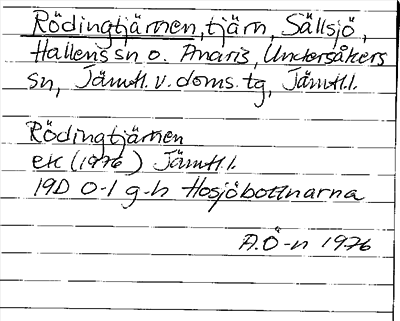 Rödingtjärnen, tjärn, Sällsjö,
Hallens sn o. Anaris, Undersåkers
sn, Jämtl. v. doms. tg, Jämtl.l.
Rödingtjärnen
ek (1976) Jämtl.l.
19D 0-1 g-h Hosjöbottnarna
A.Ö-n 1976